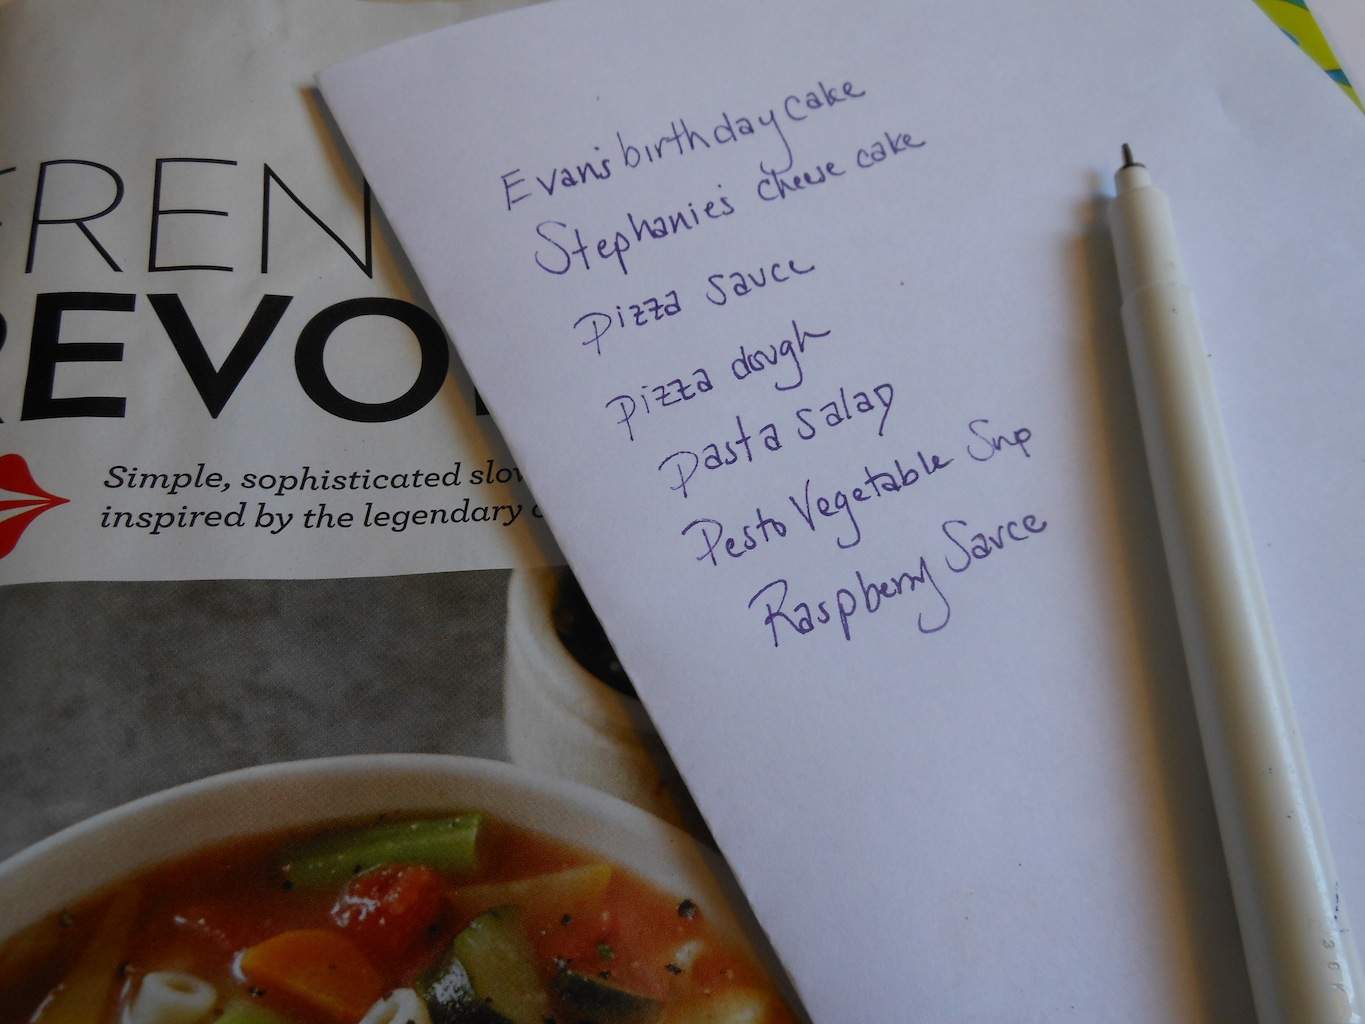 FREN
REVO
Simple, sophisticated slow
inspired by the legendary
Evan's birthday cake
Stephanie's cheese cake
Pizza sauce
Pizza dough
Pasta salad
Pesto Vegetable Soup
Raspberry Sauce